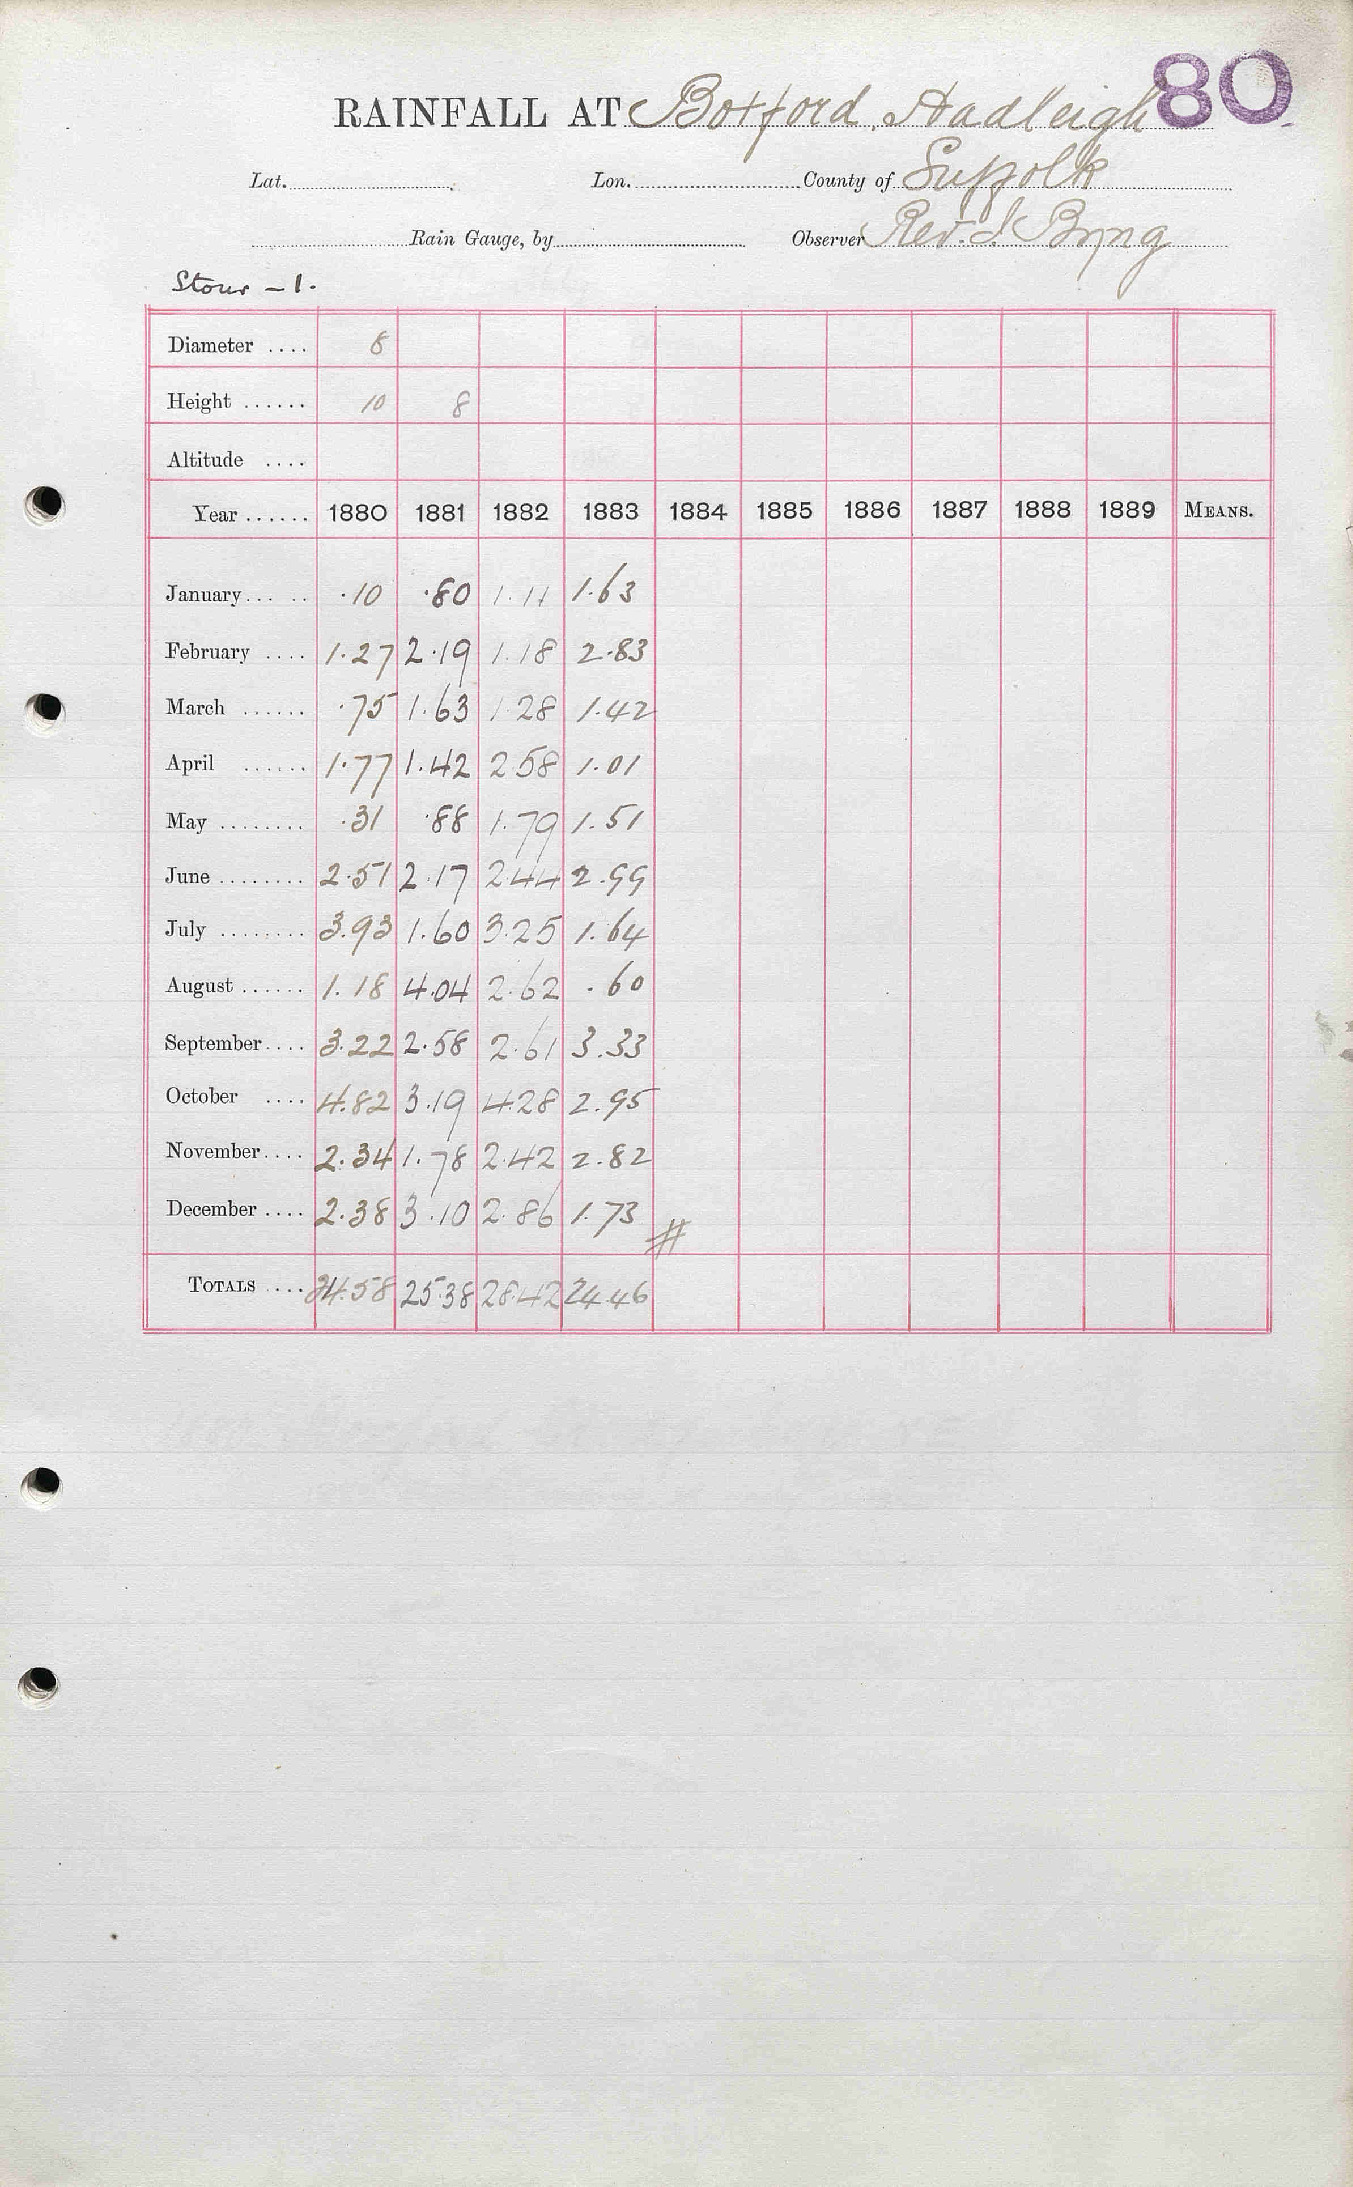 80
RAINFALL AT Boxford, Hadleigh
Lat. Lon. County of Suffolk
Rain Gauge, by Observer Rev. J. Byng
Stour - 1.
Diameter .... 8
Height ...... 10 8
Altitude ....
Year ...... 1880 1881 1882 1883 1884 1885 1886 1887 1888 1889 MEANS.
January ... .. .10 .80 1.11 1.63
February .... 1.27 2.19 1.18 2.83
March ...... .75 1.63 1.28 1.42
April ...... 1.77 1.42 2.58 1.01
May ........ .31 .88 1.79 1.51
June ........ 2.51 2.17 2.44 2.99
July ........ 3.93 1.60 3.25 1.64
August ...... 1.18 4.04 2.62 .60
September .... 3.22 2.58 2.61 3.33
October .... 4.82 3.19 4.28 2.95
November .... 2.34 1.78 2.42 2.82
December .... 2.38 3.10 2.86 1.73 #
TOTALS .... 24.58 25.38 28.42 24.46